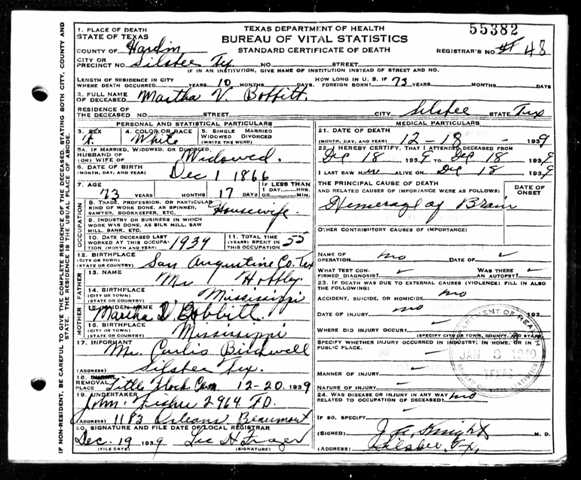 1. PLACE OF DEATH
STATE OF TEXAS
TEXAS DEPARTMENT OF HEALTH
BUREAU OF VITAL STATISTICS
STANDARD CERTIFICATE OF DEATH
55382
COUNTY OF Hardin
REGISTRAR'S NO. 48
CITY OR
PRECINCT NO. Silsbee Tex NO. STREET
IF IN AN INSTITUTION, GIVE NAME OF INSTITUTION INSTEAD OF STREET AND NO.
LENGTH OF RESIDENCE IN CITY
WHERE DEATH OCCURRED YEARS 10 MONTHS DAYS HOW LONG IN U.S. IF FOREIGN BORN? 73 YEARS MONTHS DAYS
2. FULL NAME
OF DECEASED Martha V. Bobbitt
RESIDENCE OF
THE DECEASED NO. STREET CITY Silsbee STATE Tex
PERSONAL AND STATISTICAL PARTICULARS
3. SEX F. 4. COLOR OR RACE White 5. SINGLE MARRIED
WIDOWED DIVORCED
5A. IF MARRIED, WIDOWED, OR DIVORCED
HUSBAND OF
(OR) WIFE OF Widowed
6. DATE OF BIRTH
(MONTH, DAY, AND YEAR) Dec 1 1866
7. AGE 73 YEARS MONTHS 17 DAYS IF LESS THAN 1 DAY HOURS MIN.
OCCUPATION
8. TRADE, PROFESSION, OR PARTICULAR
KIND OF WORK DONE, AS SPINNER,
SAWYER, BOOKKEEPER, ETC. Housewife
9. INDUSTRY OR BUSINESS IN WHICH
WORK WAS DONE, AS SILK MILL, SAW
MILL, BANK, ETC.
10. DATE DECEASED LAST
WORKED AT THIS OCCUPATION (MONTH AND YEAR) 1939 11. TOTAL TIME (YEARS) SPENT IN THIS OCCUPATION 55
12. BIRTHPLACE
(CITY OR TOWN)
(STATE OR COUNTRY) San Augustine Co. Tex
FATHER
13. NAME Mr
14. BIRTHPLACE
(CITY OR TOWN)
(STATE OR COUNTRY) Mississippi
MOTHER
15. MAIDEN NAME Martha V. Bobbitt
16. BIRTHPLACE
(CITY OR TOWN)
(STATE OR COUNTRY) Mississippi
17. INFORMANT Mr. Curtis
(ADDRESS) Silsbee Tex.
REMOVAL Little Rock Cem 12-20 1939
19. UNDERTAKER John
(ADDRESS) 1183 Orleans Beaumont
20. SIGNATURE AND FILE DATE OF LOCAL REGISTRAR
Dec 19 1939
(FILE DATE) (SIGNATURE)
MEDICAL PARTICULARS
21. DATE OF DEATH
(MONTH, DAY, AND YEAR) 12-18-1939
22. I HEREBY CERTIFY, THAT I ATTENDED DECEASED FROM
Dec 18 1939 TO Dec 18 1939
I LAST SAW ALIVE ON Dec 18 1939
THE PRINCIPAL CAUSE OF DEATH
AND RELATED CAUSES OF IMPORTANCE WERE AS FOLLOWS:
DATE OF
ONSET
Hemorrage of Brain
OTHER CONTRIBUTORY CAUSES OF IMPORTANCE:
NAME OF
OPERATION no DATE OF
WHAT TEST CONFIRMED DIAGNOSIS? WAS THERE AN AUTOPSY?
23. IF DEATH WAS DUE TO EXTERNAL CAUSES (VIOLENCE) FILL IN ALSO
THE FOLLOWING:
ACCIDENT, SUICIDE, OR HOMICIDE no
DATE OF INJURY no 193
WHERE DID INJURY OCCUR?
(SPECIFY CITY OR TOWN, COUNTY, AND STATE)
SPECIFY WHETHER INJURY OCCURRED IN INDUSTRY, IN HOME, OR IN
PUBLIC PLACE.
MANNER OF INJURY
NATURE OF INJURY
24. WAS DISEASE OR INJURY IN ANY WAY
RELATED TO OCCUPATION OF DECEASED? no
IF SO, SPECIFY
(SIGNED) Knight M.D.
(ADDRESS) Silsbee, Tex,